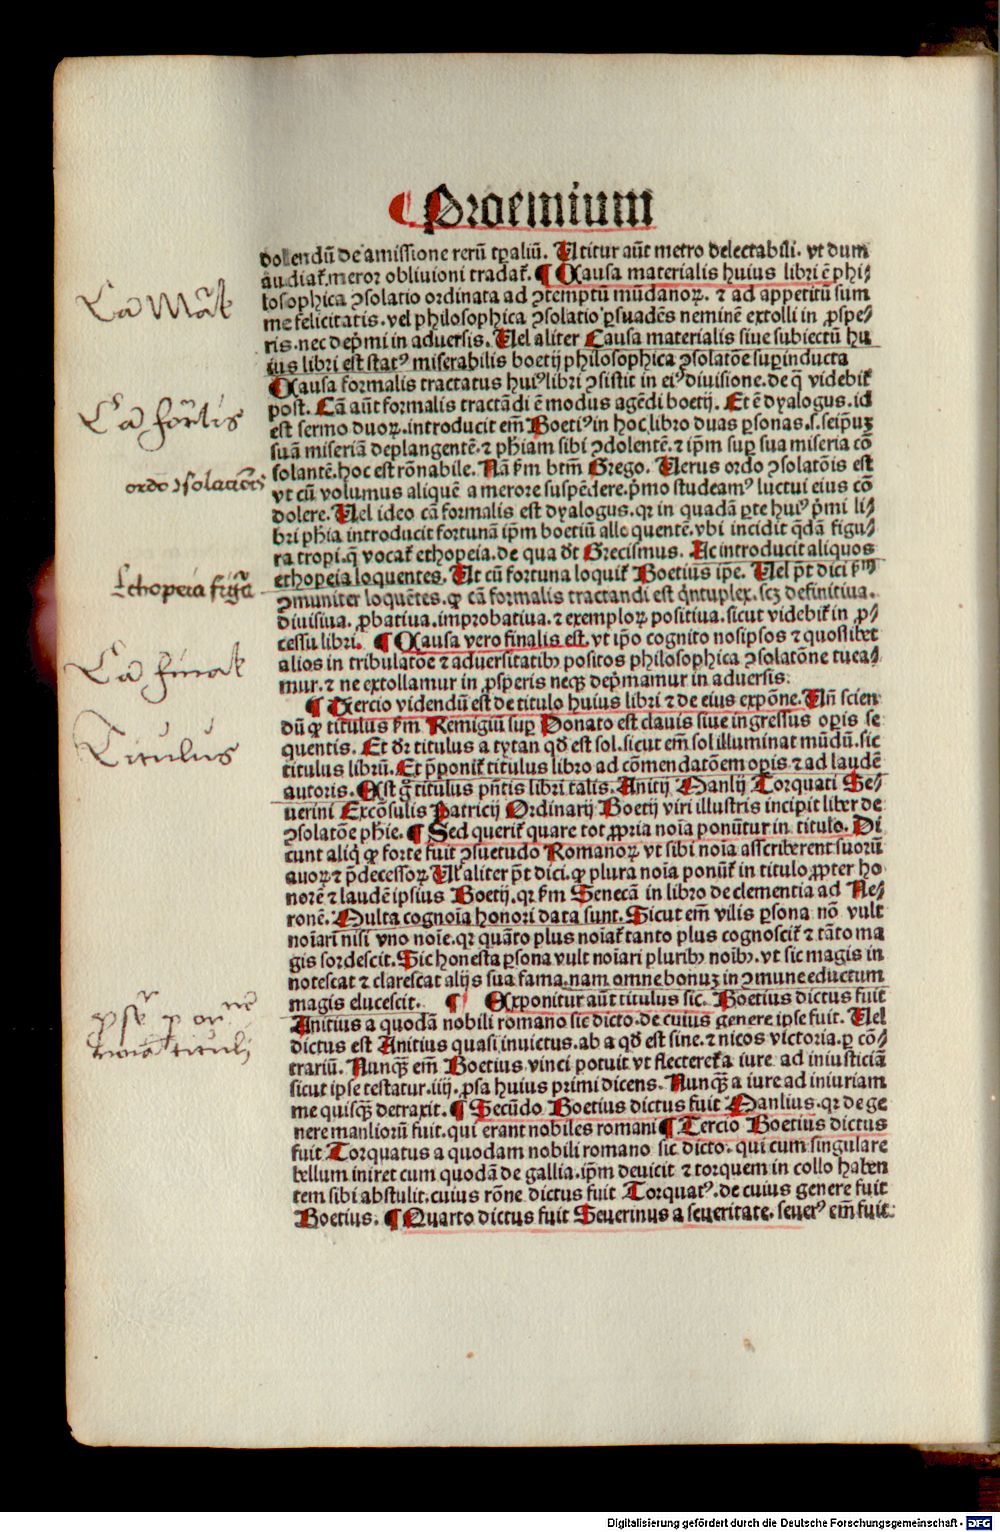 Proemium
dolendū de amissione rerū tꝑaliū. Utitur aūt metro delectabili. vt dum
audiat᷑.meror obliuioni tradat᷑. ¶ Causa materialis huius libri ē phi⸗
losophica ꝯsolatio ordinata ad ꝯtemptū mūdanoꝝ. ⁊ ad appetitū sum
me felicitatis. vel philosophica ꝯsolatio ꝑsuadēs neminē extolli in ꝓspe⸗
ris. nec dep̄mi in aduersis. Uel aliter Causa materialis siue subiectū hu
ius libri est statꝰ miserabilis boetij philosophica ꝯsolatōe suꝑinducta
Causa formalis tractatus huiꝰ libri ꝯsistit in eiꝰ diuisione. de q̄ videbit᷑
post. Cā aūt formalis tractādi ē modus agēdi boetij. Et ē dyalogus. id
est sermo duoꝝ. introducit em̄ Boetiꝰ in hoc libro duas ꝑsonas. s. seip̄uꝫ
suā miseriā deplangentē. ⁊ ph̄iam sibi ꝯdolentē. ⁊ ip̄m suꝑ sua miseria cō
solantē. hoc est rōnabile. Nā ẜm btm̄ Grego. Uerus ordo ꝯsolatōis est
vt cū volumus aliquē a merore suspēdere. p̄mo studeamꝰ luctui eius cō
dolere. Uel ideo cā formalis est dyalogus. qꝛ in quadā ꝑte huiꝰ p̄mi li⸗
bri ph̄ia introducit fortunā ip̄m boetiū alloquentē. vbi incidit q̄dā figu⸗
ra tropi. q̄ vocat᷑ ethopeia. de qua dt̄ Grecismus. Ac introducit aliquos
ethopeia loquentes. Ut cū fortuna loquit᷑ Boetius ip̄e. Uel p̄t dici ẜm
ꝯmuniter loquētes. ꝙ cā formalis tractandi est q̄ntuplex. scꝫ definitiua.
diuisiua. ꝓbatiua. improbatiua. ⁊ exemploꝝ positiua. sicut videbit᷑ in ꝓ⸗
cessu libri. ¶ Causa vero finalis est. vt ip̄o cognito nosipsos ⁊ quoslibet
alios in tribulatōe ⁊ aduersitatibꝰ positos philosophica ꝯsolatōne tuea⸗
mur. ⁊ ne extollamur in ꝓsperis neqꝫ dep̄mamur in aduersis.
¶ Tercio videndū est de titulo huius libri ⁊ de eius expōne. Un̄ scien
dū ꝙ titulus ẜm Remigiū suꝑ Donato est clauis siue ingressus oꝑis se
quentis. Et dr̄ titulus a tytan qd̄ est sol. sicut em̄ sol illuminat mūdū. sic
titulus librū. Et p̄ponit᷑ titulus libro ad cōmendatōem oꝑis ⁊ ad laudē
autoris. Est g̊ titulus pn̄tis libri talis. Anitij Manlij Torquati Se⸗
uerini Excōsulis Patricij Ordinarij Boetij viri illustris incipit liber de
ꝯsolatōe ph̄ie. ¶ Sed querit᷑ quare tot ꝓpria noīa ponūtur in titulo. Di
cunt aliq̄ ꝙ forte fuit ꝯsuetudo Romanoꝝ vt sibi noīa asscriberent suorū
auoꝝ ⁊ p̄decessoꝝ. Uel aliter p̄t dici. ꝙ plura noīa ponūt᷑ in titulo ꝓpter ho
norē ⁊ laudē ipsius Boetij. qꝛ ẜm Senecā in libro de clementia ad Ne⸗
ronē. Multa cognoīa honori data sunt. Sicut em̄ vilis ꝑsona nō vult
noīari nisi vno noīe. qꝛ quāto plus noīat᷑ tanto plus cognoscit᷑ ⁊ tāto ma
gis sordescit. Sic honesta ꝑsona vult noīari pluribꝰ noībꝰ. vt sic magis in
notescat ⁊ clarescat alijs sua fama. nam omne bonuꝫ in ꝯmune eductum
magis elucescit. ¶ Exponitur aūt titulus sic. Boetius dictus fuit
Anitius a quodā nobili romano sic dicto. de cuius genere ipse fuit. Uel
dictus est Anitius quasi inuictus. ab a qd̄ est sine. ⁊ nicos victoria. ꝑ cō⸗
trariū. Nunqꝫ em̄ Boetius vinci potuit vt flecteret᷑ a iure ad iniusticiā
sicut ipse testatur. iiij. ꝓsa huius primi dicens. Nunqꝫ a iure ad iniuriam
me quisqꝫ detraxit. ¶ Secūdo Boetius dictus fuit Manlius. qꝛ de ge
nere manliorū fuit. qui erant nobiles romani ¶ Tercio Boetius dictus
fuit Torquatus a quodam nobili romano sic dicto. qui cum singulare
bellum iniret cum quodā de gallia. ip̄m deuicit ⁊ torquem in collo haben
tem sibi abstulit. cuius rōne dictus fuit Torquatꝰ. de cuius genere fuit
Boetius. ¶ Quarto dictus fuit Seuerinus a seueritate. seuerꝰ em̄ fuit
Ca Māt᷑
Ca fōrlis
ordo ꝯsolacōis
Ethopeia fig͛a
Ca finat᷑
Titulus
Digitalisierung gefördert durch die Deutsche Forschungsgemeinschaft - DFG